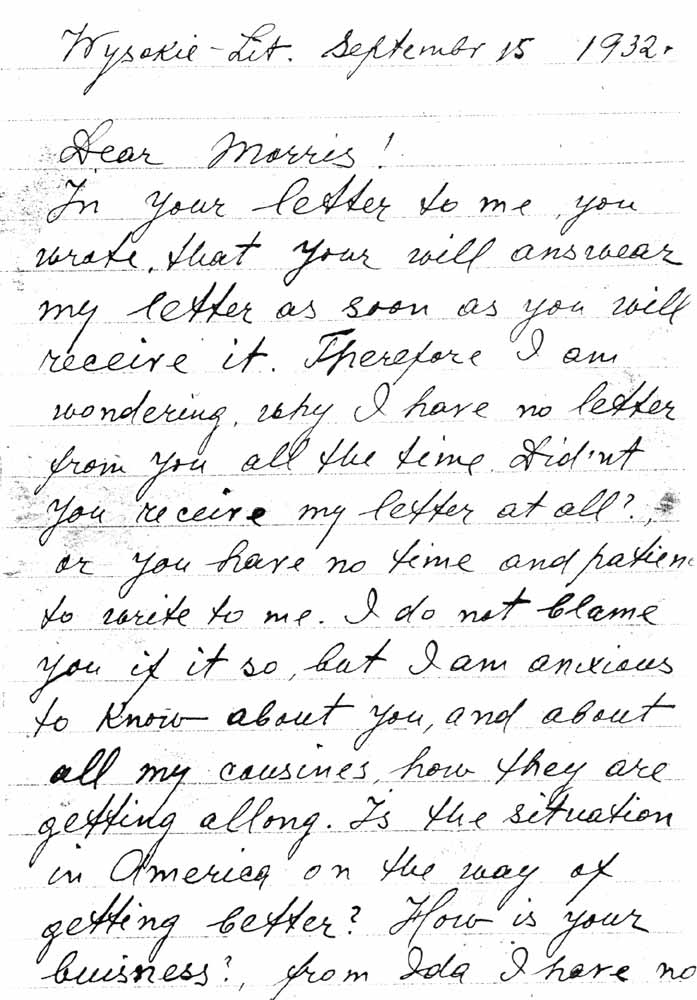 Wysokie-Lit. Septembr 15 1932.
Dear Morris!
In your letter to me, you
wrote, that your will answear
my letter as soon as you will
receive it. Therefore I am
wondering, why I have no letter
from you all the time. Did'nt
you receive my letter at all?,
or you have no time and patienc
to write to me. I do not blame
you if it so, but I am anxious
to know about you, and about
all my cousines, how they are
getting allong. Is the situation
in America on the way of
getting better? How is your
buisness?, from Ida I have no